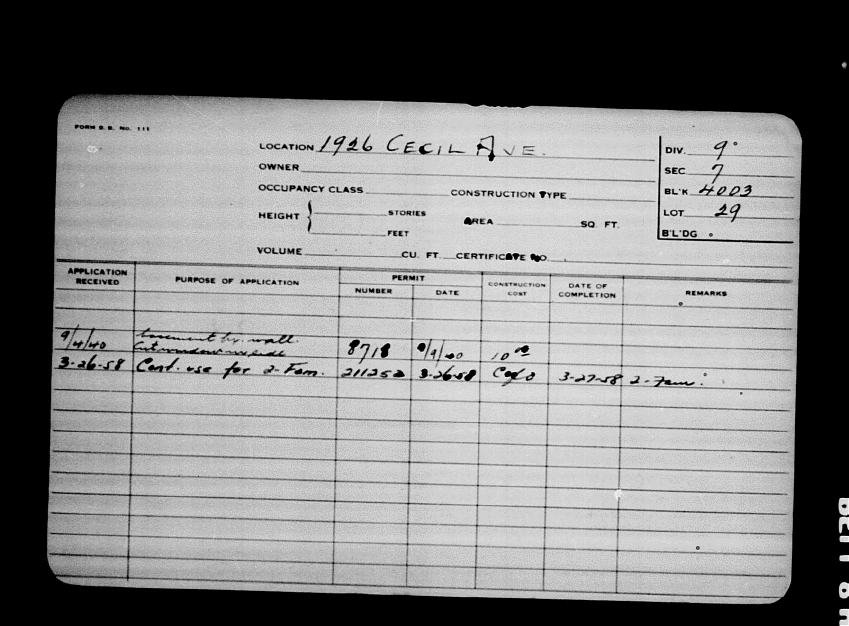 FORM B. B. NO. 111
LOCATION 1926 CECIL AVE.
OWNER
OCCUPANCY CLASS CONSTRUCTION TYPE
HEIGHT STORIES FEET AREA SQ. FT.
VOLUME CU. FT. CERTIFICATE NO.
DIV. 9
SEC 7
BL'K 4003
LOT 29
B'L'DG
APPLICATION RECEIVED PURPOSE OF APPLICATION PERMIT NUMBER DATE CONSTRUCTION COST DATE OF COMPLETION REMARKS
9/4/40 basement wall. 
Cut window in side 8718 9/9/40 10 00
3-26-58 Cont. use for 2-Fam. 211252 3-26-58 C of O 3-27-58 2-Fam.